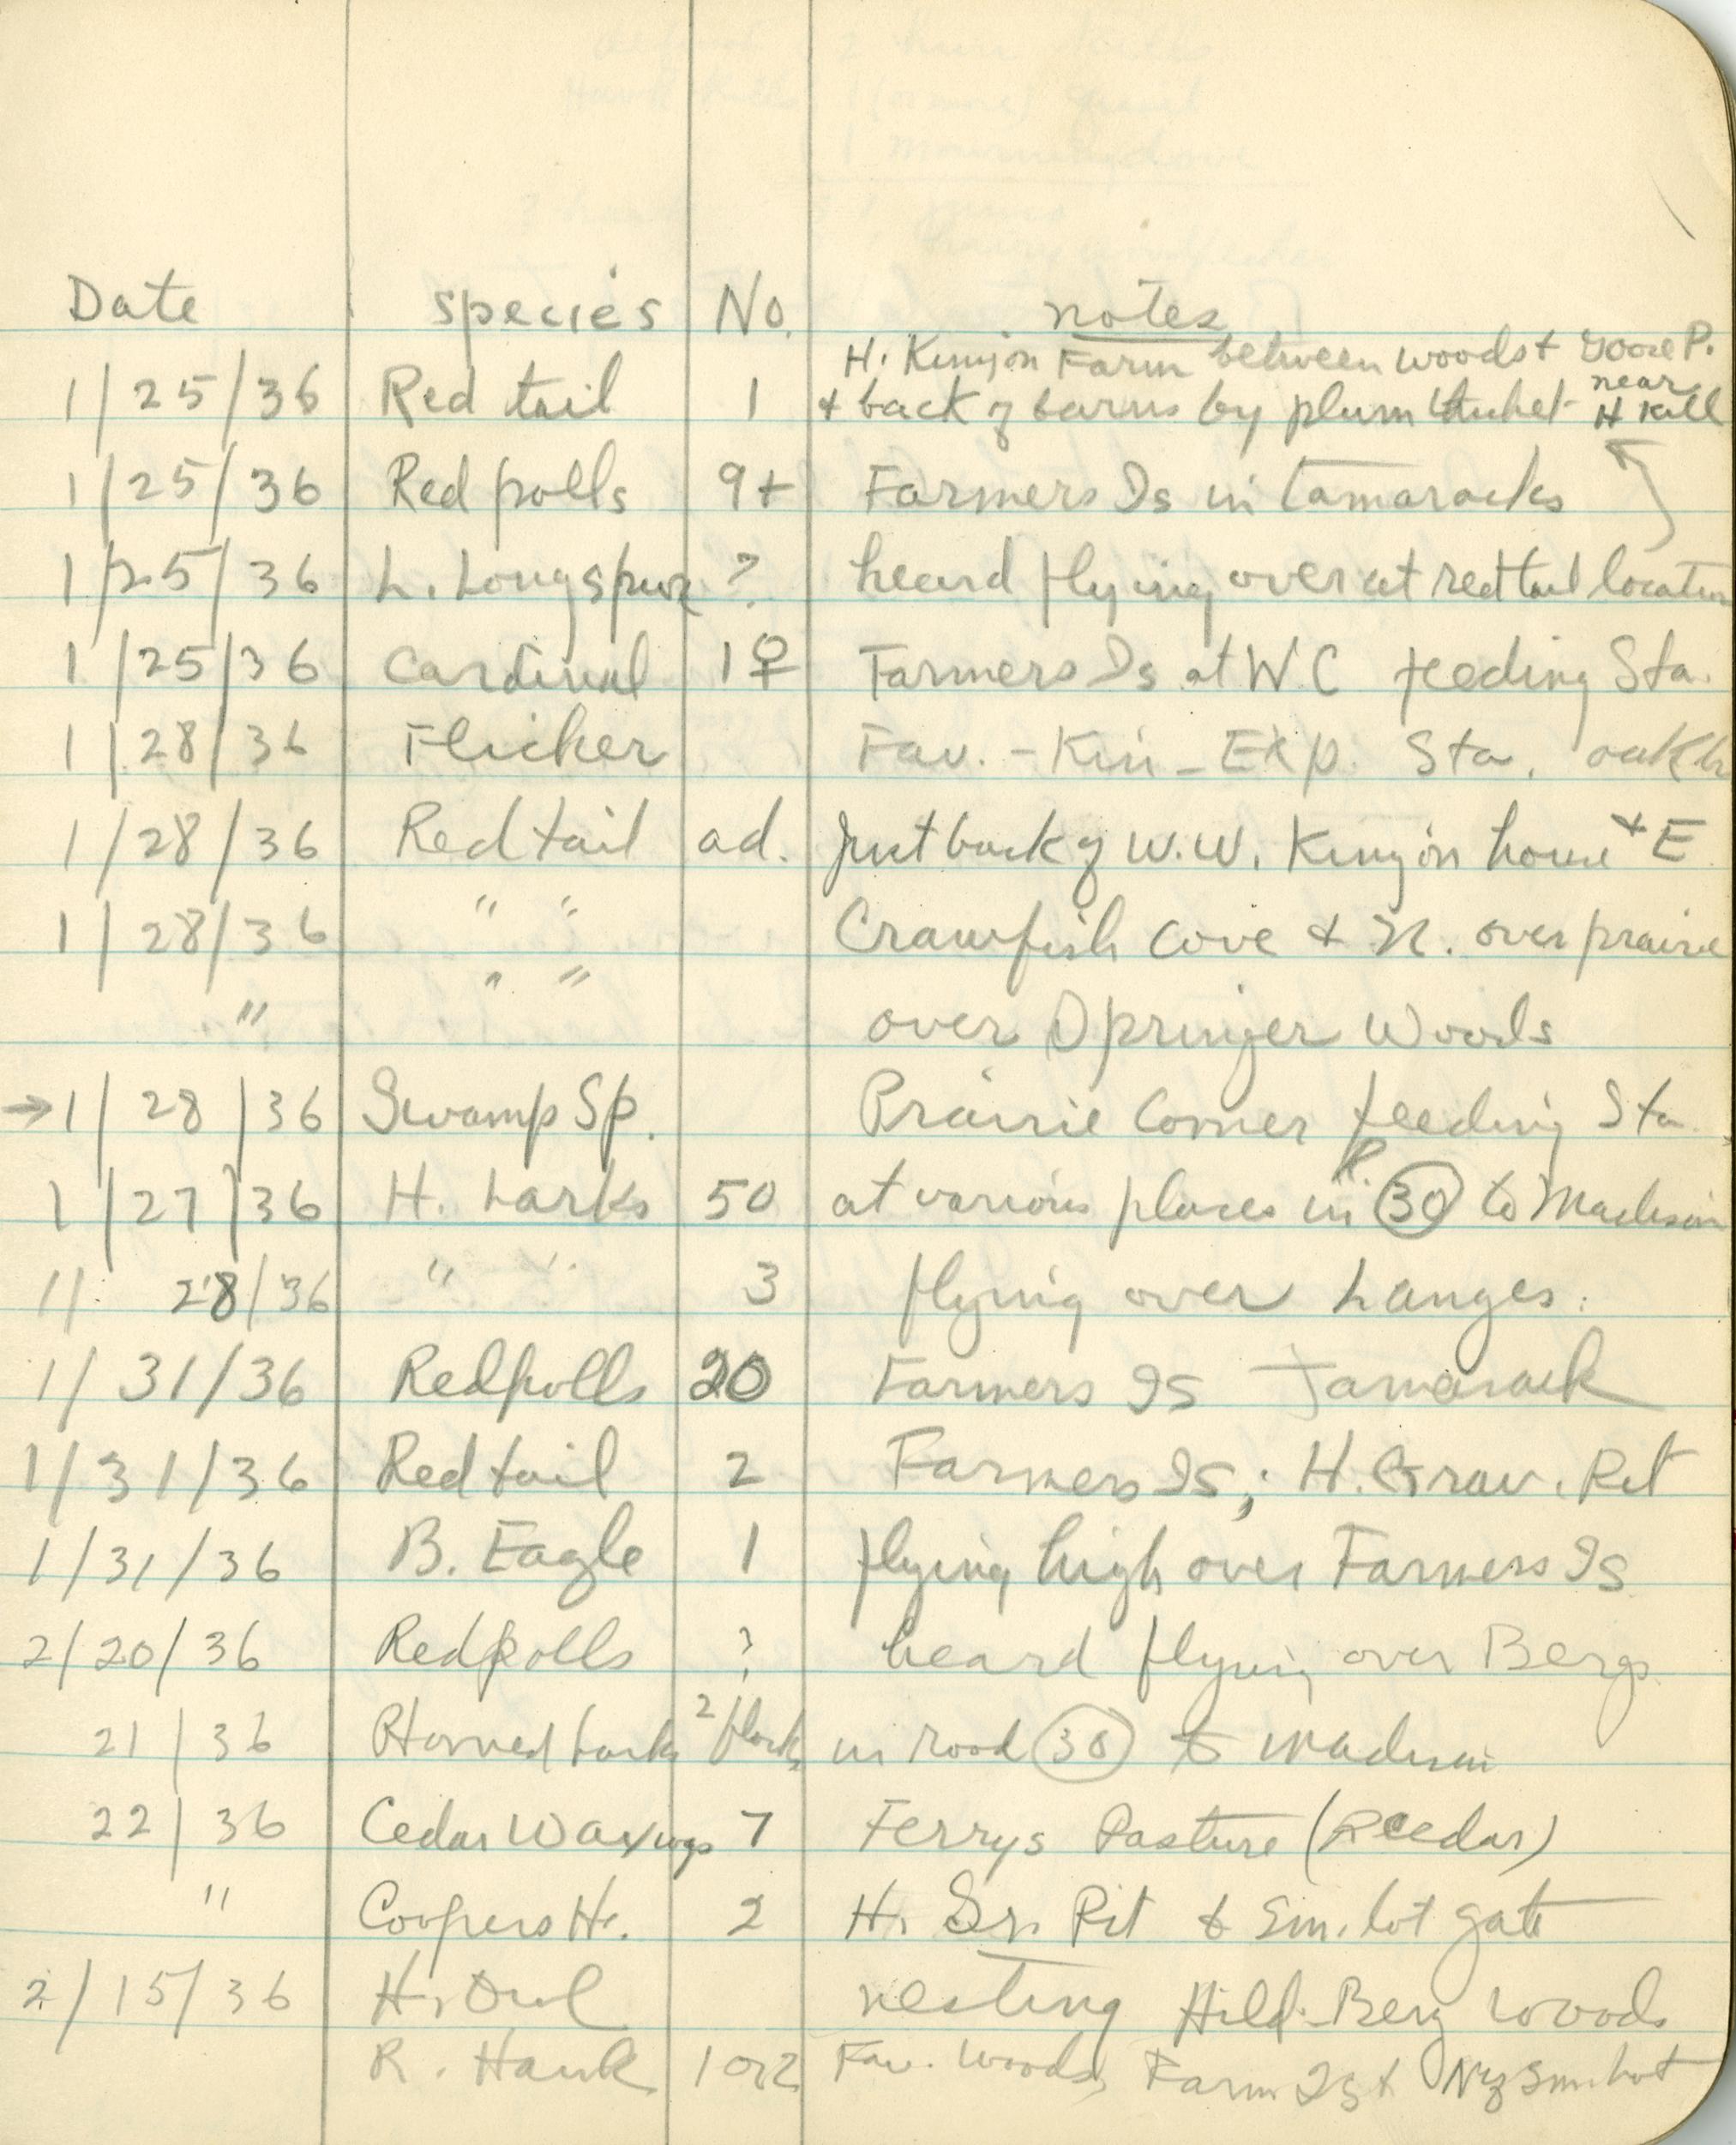 Date species No. notes
H. Kinyon Farm between woods + Goose P.
1/25/36 Red tail 1 + back of barns by plum thicket near H Kill
1/25/36 Redpolls 9+ Farmers Is in tamaracks
1/25/36 L. Longspur ? heard flying over at redtail location
1/25/36 Cardinal 1♀ Farmers Is at W.C feeding Sta.
1/28/36 Flicker Fav. - Kin - Exp. Sta. oak
1/28/36 Redtail ad. Just back of W.W. Kinyon house + E
1/28/36 " " Crawfish Cove + N. over prairie
" " " over Springer Woods
→1/28/36 Swamp Sp. Prairie Corner feeding Sta.
1/27/36 H. Larks 50 at various places in R. 30 to Madison
1/ 28/36 " " 3 flying over Langes.
1/31/36 Redpolls 20 Farmers Is Tamarack
1/31/36 Redtail 2 Farmers Is; H. Grav. Pit
1/31/36 B. Eagle 1 flying high over Farmers Is
2/20/36 Redpolls ? heard flying over Bergs
21/36 Horned Larks 2 flocks in road 30 to Madison
22/36 Cedar Waxwgs 7 Ferrys Pasture (R Cedar)
" Coopers H. 2 H. Gr. Pit & Sm. lot gate
2/15/36 H. Owl nesting Hild-Berg Woods
R. Hawk 1 or 2 Fav. Woods, Farm Is + N of Sm. lot